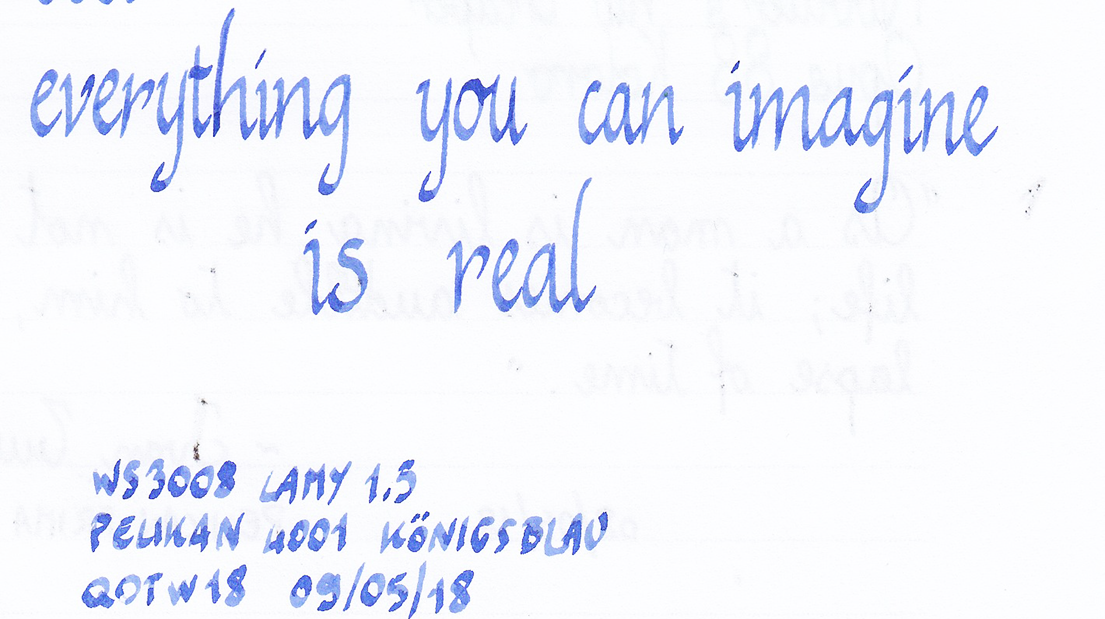 everything you can imagine
is real
WS3008 LAMY 1.5
PELIKAN 4001 KÖNIGSBLAU
QOTW18 09/05/18